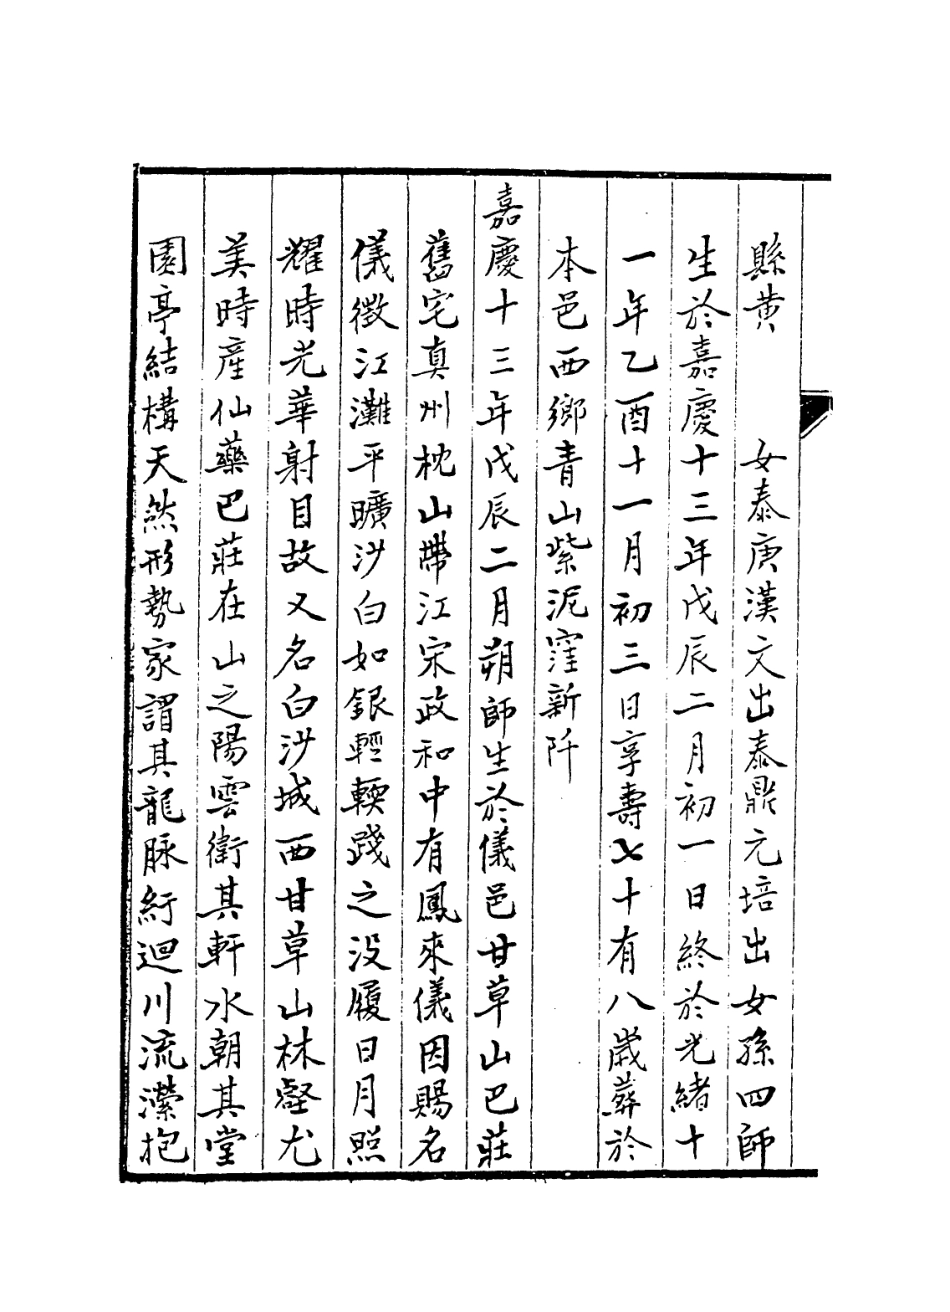 縣黄　　女泰庚漢文出泰鼎元培出女孫四師
生於嘉慶十三年戊辰二月初一日終於光緒十
一年乙酉十一月初三日享壽七十有八歲葬於
本邑西鄉青山紫泥窪新阡
嘉慶十三年戊辰二月朔師生於儀邑甘草山巴莊
舊宅真州枕山帶江宋政和中有鳳來儀因賜名
儀徵江灘平曠沙白如銀輕輭踐之没履日月照
耀時光華射目故又名白沙城西甘草山林壑尤
美時產仙藥巴莊在山之陽雲衛其軒水朝其堂
園亭結構天然形勢家謂其龍脉紆迴川流瀠抱